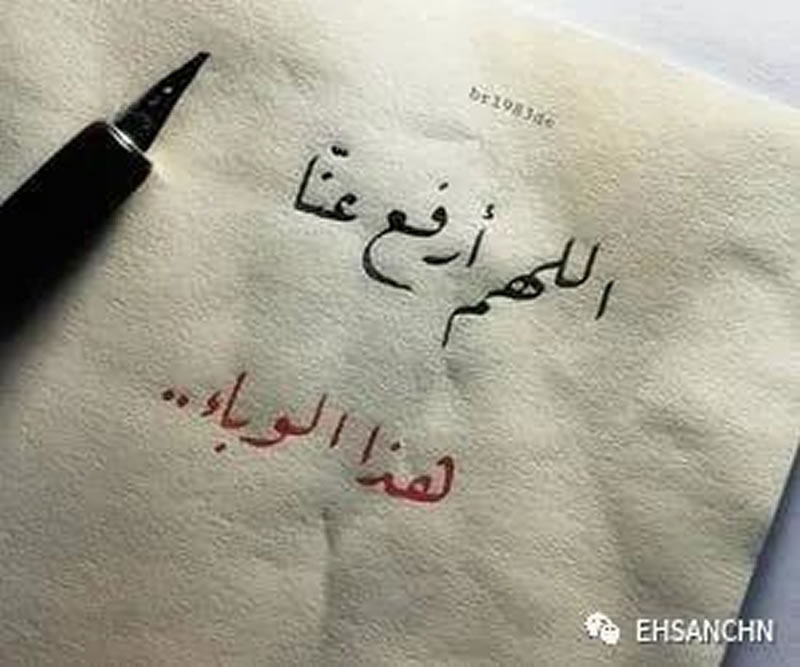 br1983de
اللهم أرفع عنّا
هذا الوباء..
EHSANCHN